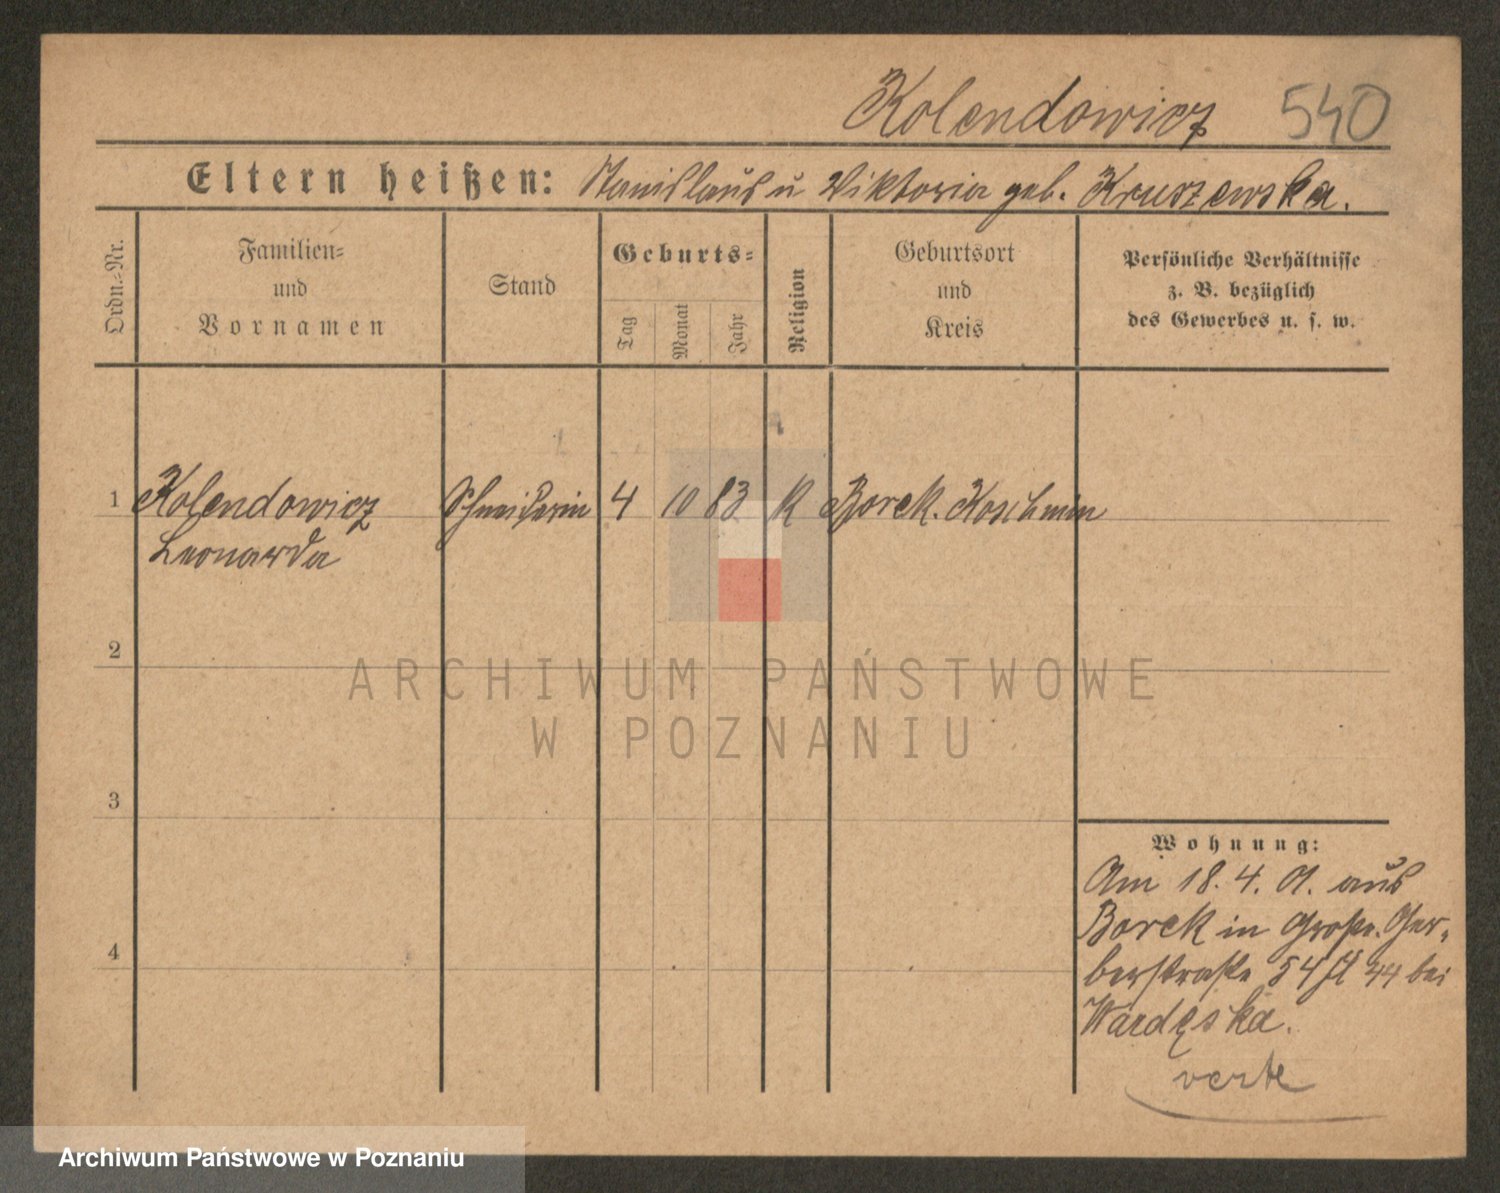 Kolendowicz 540
Eltern heißen: Stanislaus u Viktoria geb. Kruszewska.
Ordn.-Nr.
Familien-
und
Vornamen
Stand
Geburts-
Tag
Monat
Jahr
Religion
Geburtsort
und
Kreis
Persönliche Verhältnisse
z. B. bezüglich
des Gewerbes u. s. w.
1 Kolendowicz Schneiderin 4 10 83 K Borek. Koschmin
Leonarda
2
3
4
Wohnung:
Am 18. 4. 01. aus
Borek in Große. Ger-
berstraße 54 44 bei
verte
ARCHIWUM PAŃSTWOWE
W POZNANIU
Archiwum Państwowe w Poznaniu